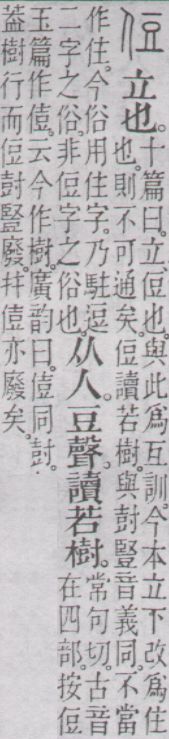 侸
立也。
十篇曰。立、侸也。與此爲互訓。今本立下改爲住
也。則不可通矣。侸讀若樹。與尌豎音義同。不當
作住。今俗用住字。乃駐逗
二字之俗。非侸字之俗也。
从人。豆聲。讀若樹。
常句切。古音
在四部。按侸
玉篇作𠊪。云今作樹。廣韵曰。𠊪同尌。
蓋樹行而侸尌豎廢。幷𠊪亦廢矣。